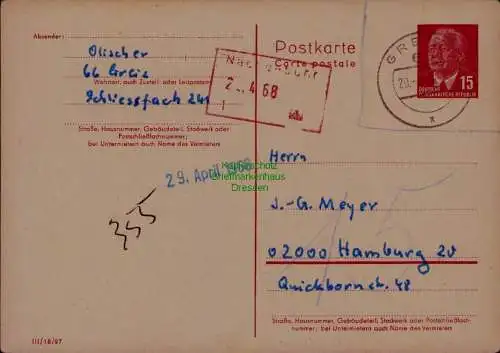 Absender:
Olischer
66 Greiz
Wohnort, auch Zustell- oder Leitpostamt
Schliessfach 241
Straße, Hausnummer, Gebäudeteil, Stockwerk oder
Postschließfachnummer;
bei Untermietern auch Name des Vermieters
29. April 1968
III/18/97
Postkarte
Carte postale
GRE
15
DEUTSCHE
DEMOKRATISCHE REPUBLIK
Briefmarkenhaus
Dresden
Herrn
J.-G. Meyer
02000 Hamburg 20
Quickbornstr. 48
Straße, Hausnummer, Gebäudeteil, Stockwerk oder Postschließfach-
nummer; bei Untermietern auch Name des Vermieters